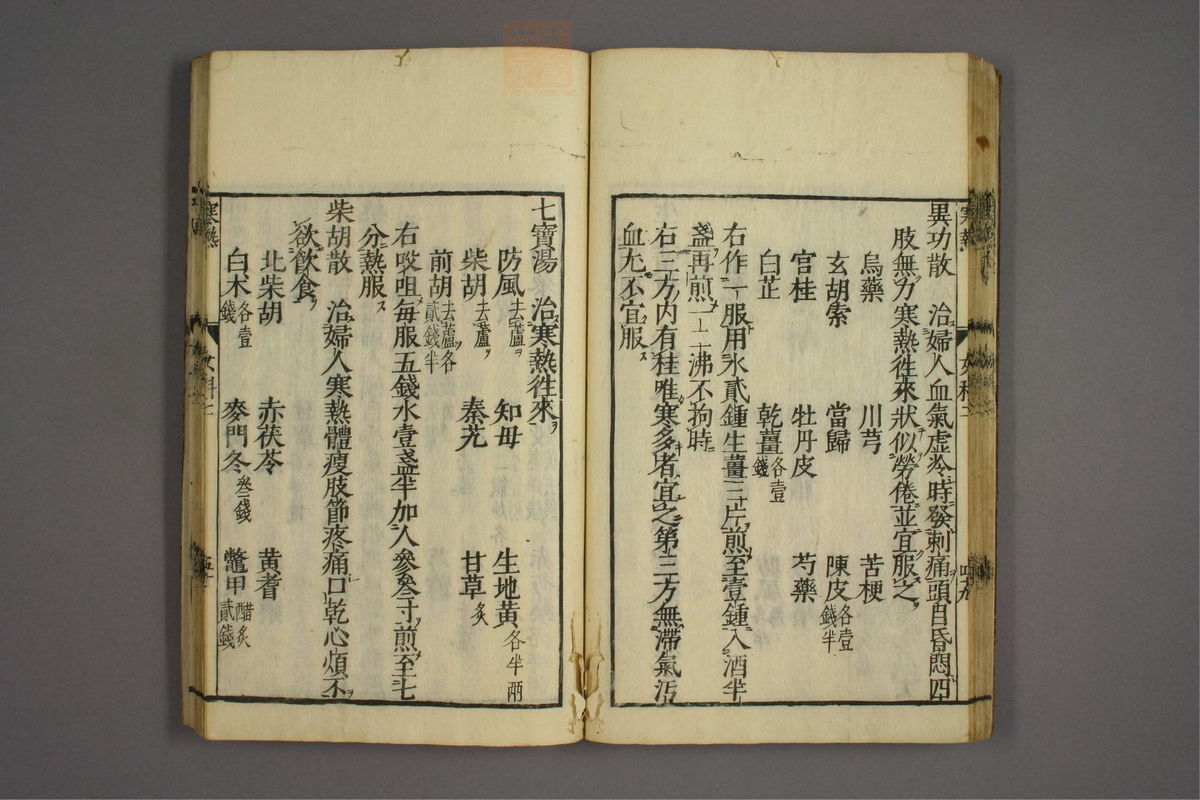 異功散　治婦人血氣虛冷時發刺痛頭目昏悶四
肢無力寒熱徃來狀似勞倦並宜服之
烏藥　川芎　苦梗
玄胡索　當歸　陳皮各壹錢半
官桂　牡丹皮　芍藥
白芷　乾薑各壹錢
右作一服用水貳鍾生薑三片煎至壹鍾入酒半
盞再煎一二沸不拘時
右三方內有桂唯寒多者宜之第三方無滯氣活
血尤不宜服
七寶湯　治寒熱徃來
防風去蘆　知母　生地黃各半兩
柴胡去蘆　秦艽　甘草炙
前胡去蘆各貳錢半
右㕮咀每服五錢水壹盞半加人參叁寸煎至七
分熱服
柴胡散　治婦人寒熱體瘦肢節疼痛口乾心煩不
欲飲食
北柴胡　赤茯苓　黃耆
白术各壹錢　麥門冬叁錢　鱉甲醋炙貳錢
寒熱
女科二